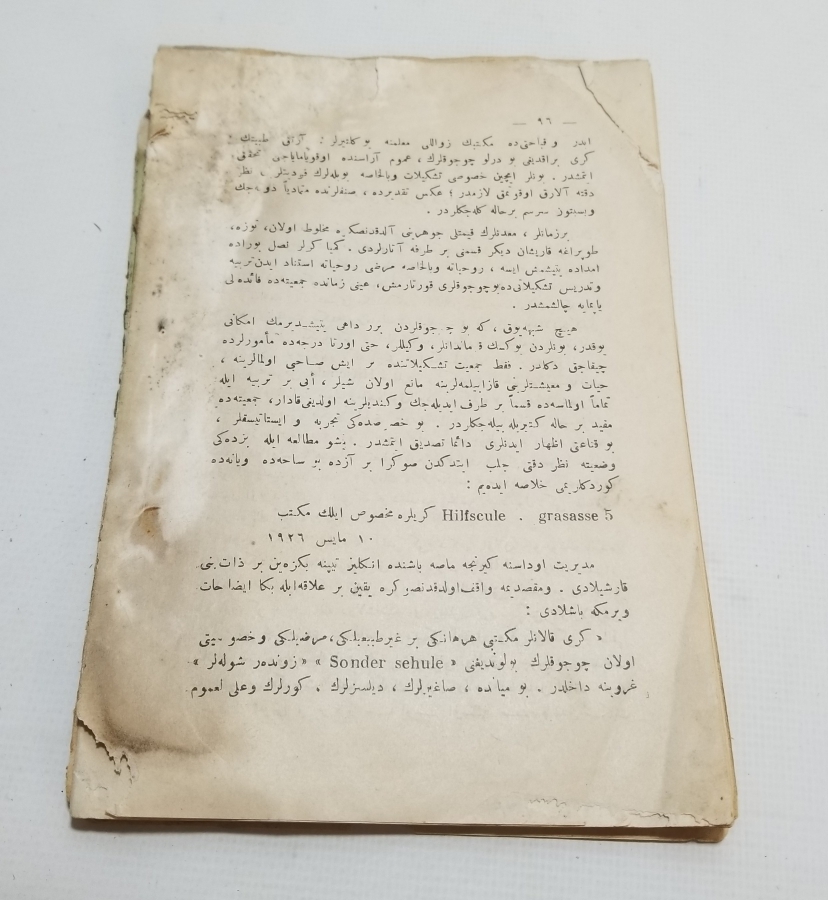 — ٩٦ —
ايدر و قباحتى‌ده مكتبك زواللى معلمنه بوكلتيرلر ؛ آرتق طبيبتك ؛
كرى براقديغى بو درلو چوجوقلرك ، عموم آراسنده اوقويامايه‌جغى تحقق
ايتمشدر . بونلر ايچين خصوصى تشكيلات وبالخاصه بويله‌لرك نظر
دقته آلارق اوقوتمق لازمدر ؛ عكس تقديرده ، صنفلرنده متمادياً
وبسبتون سرسم برحاله كله‌جكلردر .
برزمانلر ، معدنلرك قيمتلى جوهرينى آلدقدنصكره مخلوط اولان ، توزه ،
طوپراغه قاريشان ديكر قسمنى بر طرفه آتارلردى . كيميا كرلر نصل بوراده
امداده يتيشمش ايسه ، روحياته وبالخاصه مرضى روحياته استناد ايدن تربيه
وتدريس تشكيلاتى‌ده بوچوجوقلرى قورتارمش ، عينى زمانده جمعيته‌ده فائده‌لى
ياپمايه چالشمشدر .
هيچ شبهه‌يوق ، كه بو چوجوقلردن برر داهى يتيشديرمك امكانى
يوقدر ، بونلردن بوكسك قوماندانلر ، وكيللر ، حتى اورتا درجه‌ده مأمورلرده
چيقاجق دكلدر . فقط جمعيت تشكيلاتنده بر ايش صاحبى اولمالرينه ،
حيات و معيشتلرينى قازانبيلمه‌لرينه مانع اولان شيلر ، أيى بر تربيه ايله
تماماً اولماسه‌ده قسماً بر طرف ايديله‌جك وكنديلرينه اولديغى‌قادار ، جمعيته‌ده
مفيد بر حاله كتيريله بيله‌جكلردر . بو خصوصده‌كى تجربه و ايستاتيسقلر ،
بو قناعتى اظهار ايدنلرى دائما تصديق ايتمشدر . بشو مطالعه ايله بزده‌كى
وضعيته نظر دقتى جلب ايتدكدن صوكرا بر آزده بو ساحه‌ده ويانه‌ده
كوردكلريمى خلاصه ايده‌يم :
كريلره مخصوص ايلك مكتب Hilfscule . grasasse 5
١٠ مايس ١٩٢٦
مديريت اوداسنه كيرنجه ماصه باشنده انكليز تيپنه بكزه‌ين بر ذات بنى
قارشيلادى . ومقصديمه واقف‌اولدقدنصوكره يقين بر علاقه‌ايله بكا ايضاحات
ويرمكه باشلادى :
« كرى قالانلر مكتبى هرهانكى بر غيرطبيعيلكى ، مرضيلكى وخصوصيتى
اولان چوجوقلرك بولونديغنى « Sonder sehule » « زونده‌ر شوله‌لر »
غروپنه داخلدر . بو ميانده ، صاغيرلرك ، ديلسزلرك ، كورلرك وعلى العموم